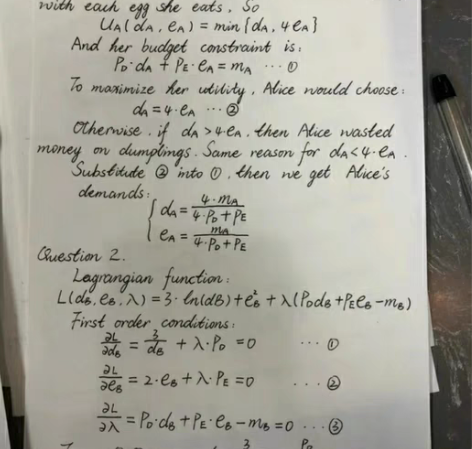 with each egg she eats. So
U_A(d_A, e_A) = min{d_A, 4e_A}
And her budget constraint is:
P_D·d_A + P_E·e_A = m_A ··· ①
To maximize her utility, Alice would choose:
d_A = 4·e_A ··· ②
Otherwise, if d_A > 4·e_A, then Alice wasted
money on dumplings. Same reason for d_A < 4·e_A.
Substitute ② into ①, then we get Alice's
demands:
{ d_A = 4·m_A / (4·P_D + P_E)
e_A = m_A / (4·P_D + P_E)
Question 2.
Lagrangian function:
L(d_B, e_B, λ) = 3·ln(d_B) + e_B² + λ(P_D d_B + P_E e_B − m_B)
First order conditions:
∂L/∂d_B = 3/d_B + λ·P_D = 0 ··· ①
∂L/∂e_B = 2·e_B + λ·P_E = 0 ··· ②
∂L/∂λ = P_D·d_B + P_E·e_B − m_B = 0 ··· ③